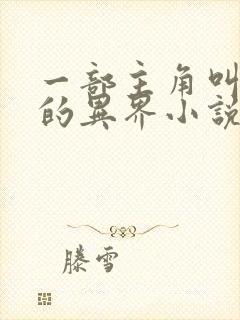 一部主角叫
的異界小說
滕雪